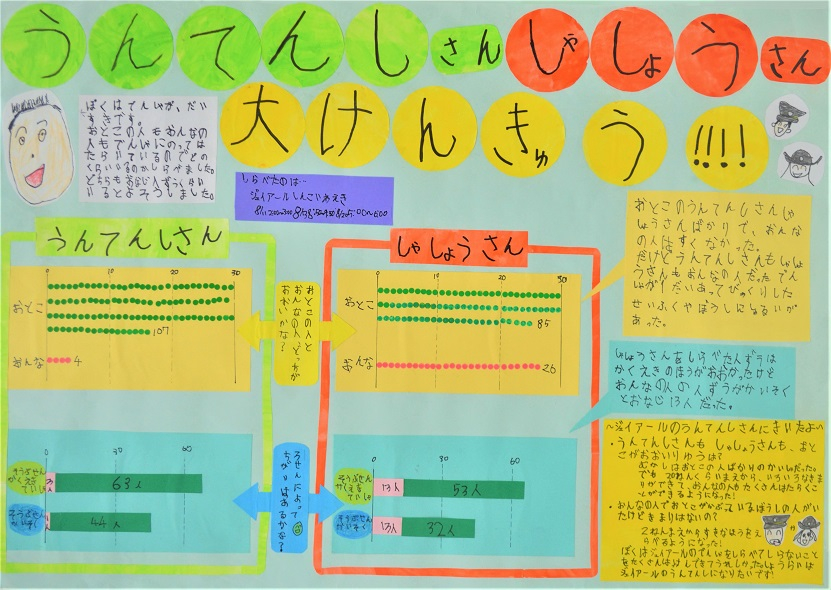 うんてんしさん しゃしょうさん
大けんきゅう!!!!
ぼくはでんしゃが、だい
すきです。
おとこの人もおんなの
人もでんしゃにのっては
たらいているのでどの
くらいいるのかしらべました。
どちらもおなじ人ずうくらい
いるとよそうしました。
しらべたのは…
ジェイアールしんこいわえき
うんてんしさん
0 10 20 30
おとこ
107
おんな
4
おとこの人と
おんなの人、どっちが
おおいかな?
しゃしょうさん
0 10 20 30
おとこ
85
おんな
26
おとこのうんてんしさんしゃ
しょうさんばかりで、おんな
の人はすくなかった。
だけどうんてんしさんもしゃしょ
うさんもおんなの人だったでん
しゃが1だいあってびっくりした
せいふくやぼうしにもちがいが
あった。
しゃしょうさんをしらべたんずうは
かくえきのほうがおおかったけど
おんなの人の人ずうがかいそく
とおなじ13人だった。
0 30 60
そうぶせん
かくえき
ていしゃ
3人
63人
そうぶせん
かいそく
1人
44人
ろせんによって
ちがいはあるかな?
0 30 60
そうぶせん
かくえき
ていしゃ
13人
53人
そうぶせん
かいそく
13人
32人
～ジェイアールのうんてんしさんにきいたよ～
・うんてんしさんも しゃしょうさんも、おと
こがおおいりゆうは?
むかしはおとこの人ばかりのかいしゃだった。
でも 20ねんくらいまえから、いろいろなきま
りができて、おんなの人もたくさんはたらくこ
とができるようになった!
・おんなの人でおとこがかぶっているぼうしの人がい
たけどきまりはないの?
2ねんまえからすきなほうをえ
らべるようになった!
ぼくはジェイアールのでんしゃをしらべてしらないこと
をたくさんはっけんできてうれしかった。しょうらいは
ジェイアールのうんてんしになりたいです!